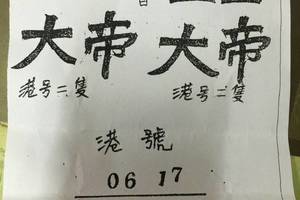 大帝 大帝
港号二隻 港号二隻
港號
06 17